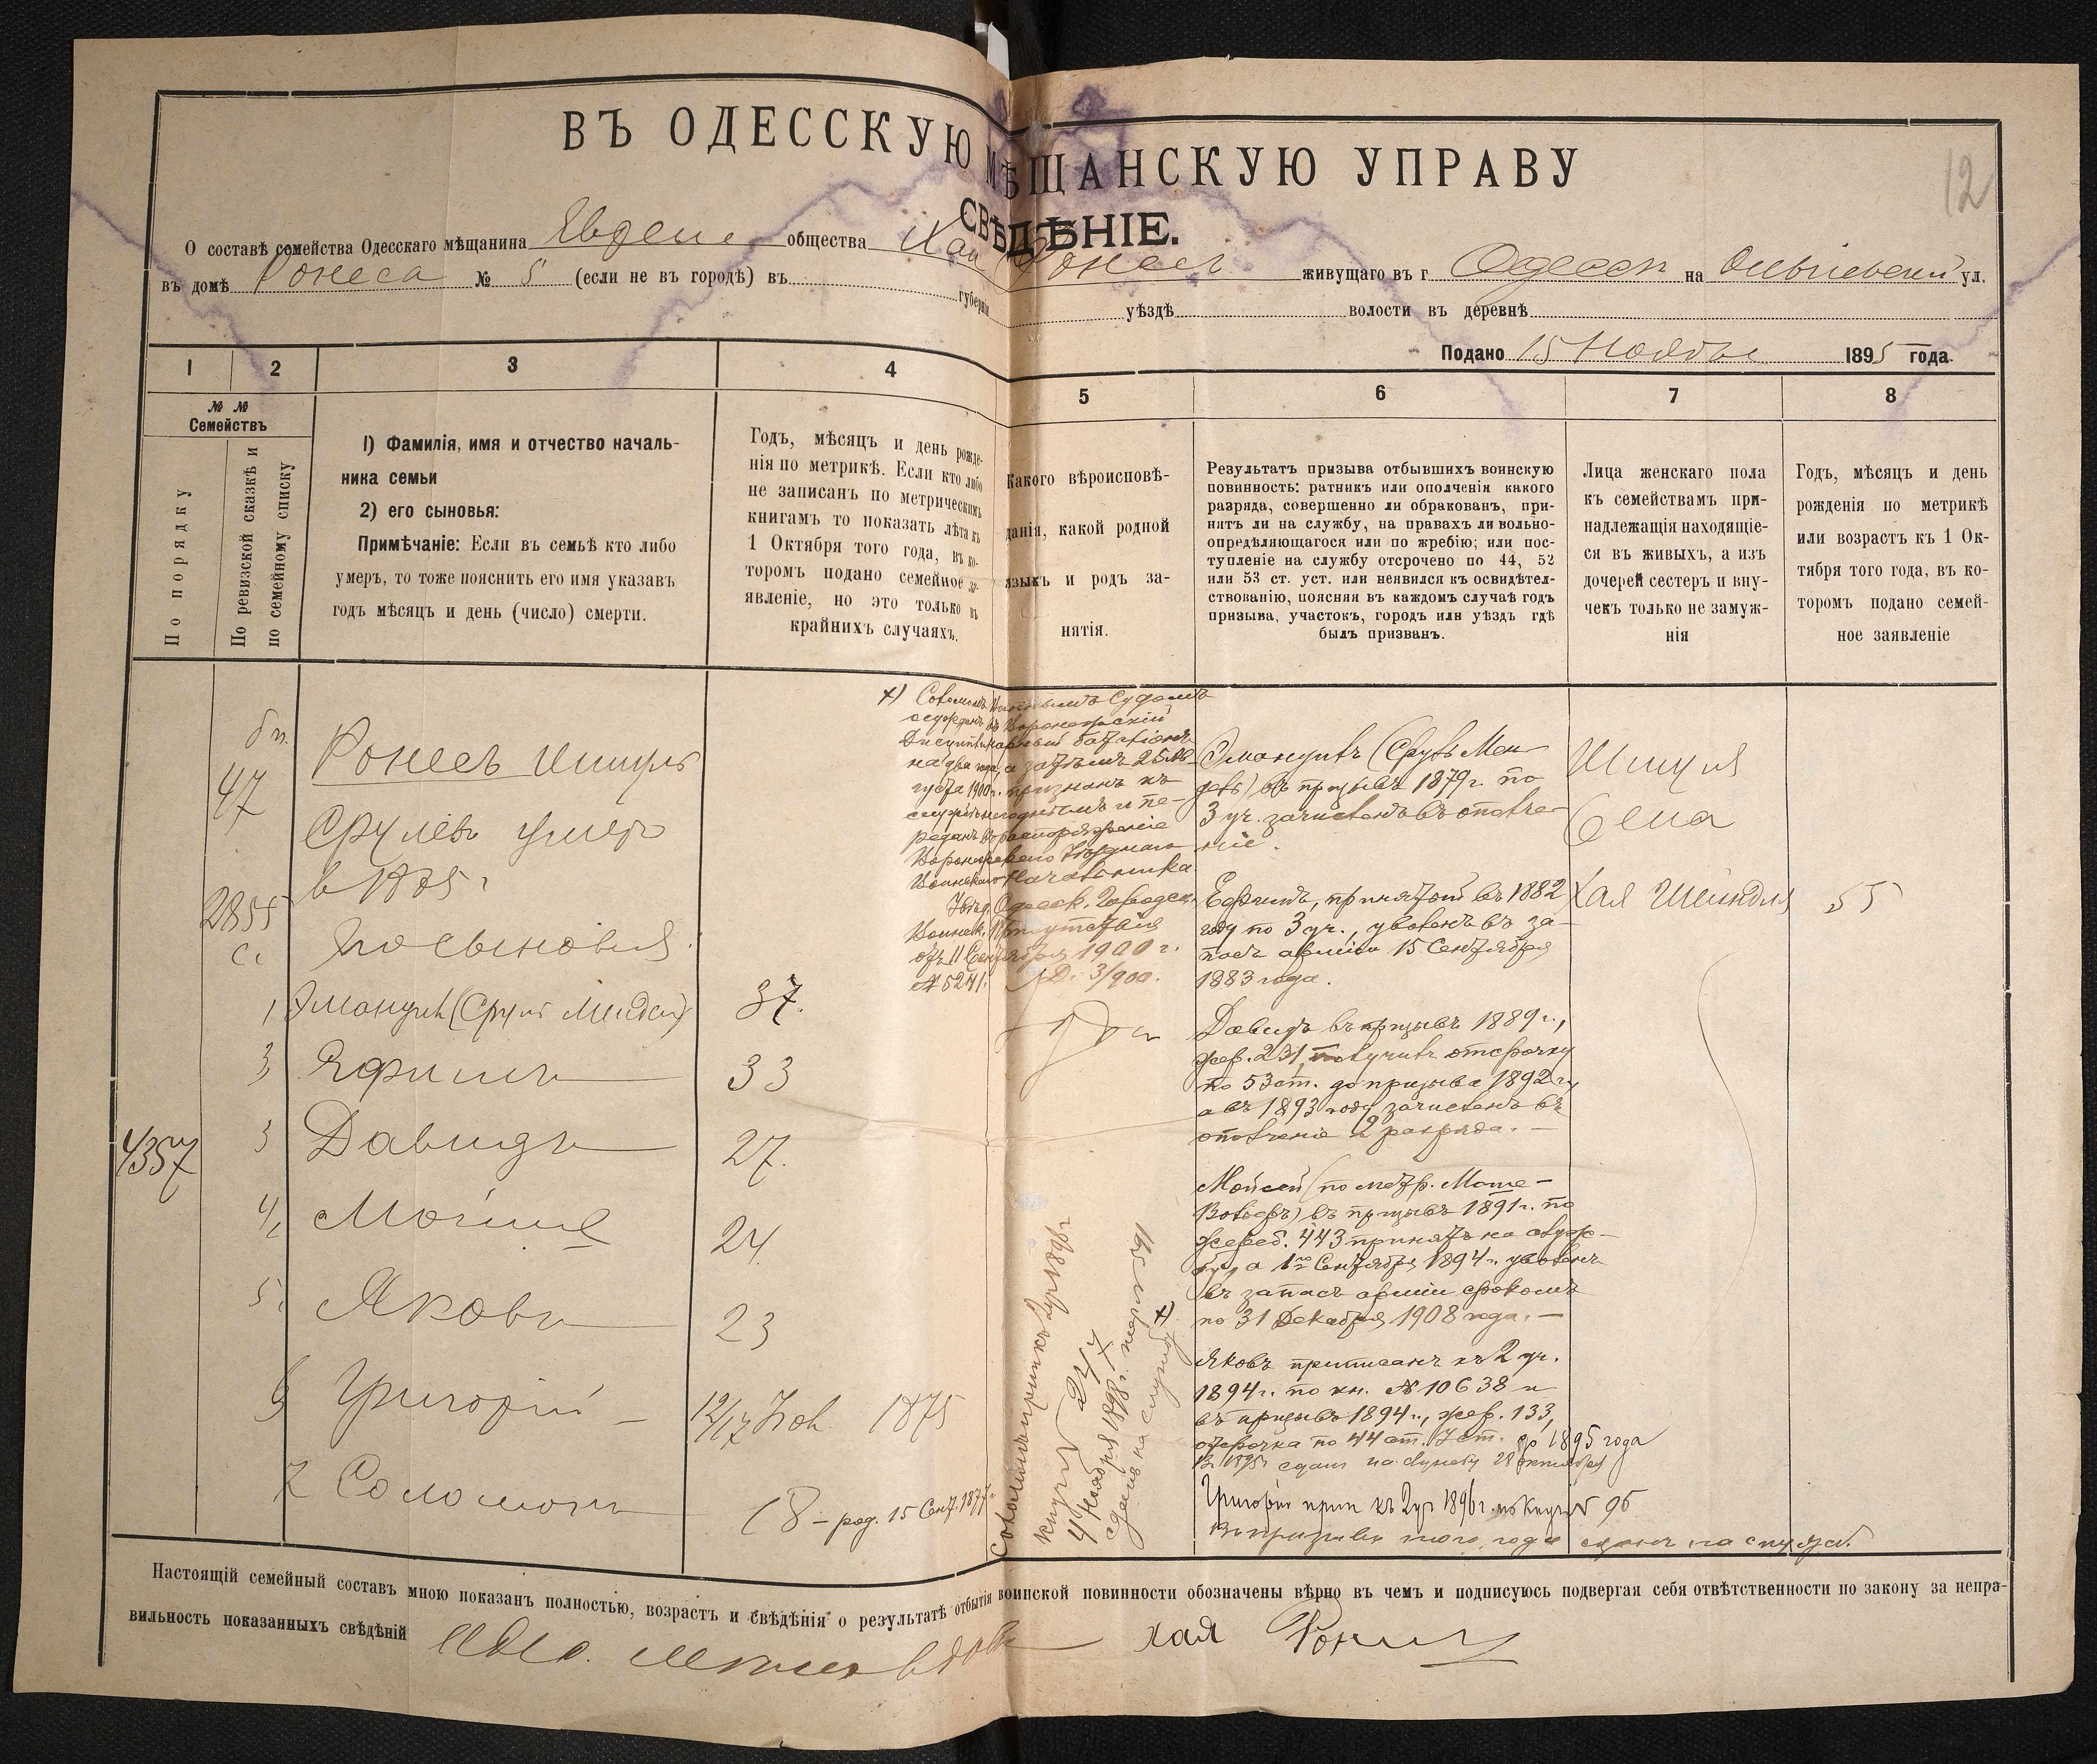 12
ВЪ ОДЕССКУЮ МѢЩАНСКУЮ УПРАВУ
СВѢДѢНІЕ.
О составѣ семейства Одесскаго мѣщанина общества живущаго въ г. Одессѣ на ул.
въ домѣ Ронеса № 5 (если не въ городѣ) въ губерніи уѣздѣ волости въ деревнѣ
Подано 15 Ноября 1895 года.
1 2 3 4 5 6 7 8
№ № Семействъ
По порядку
По ревизской сказкѣ и
по семейному списку
1) Фамилія, имя и отчество началь-
ника семьи
2) его сыновья:
Примѣчаніе: Если въ семьѣ кто либо
умеръ, то тоже пояснить его имя указавъ
годъ мѣсяцъ и день (число) смерти.
Годъ, мѣсяцъ и день рожде-
нія по метрикѣ. Если кто либо
не записанъ по метрическимъ
книгамъ то показать лѣта къ
1 Октября того года, въ ко-
торомъ подано семейное за-
явленіе, но это только въ
крайнихъ случаяхъ.
Какого вѣроисповѣ-
данія, какой родной
языкъ и родъ за-
нятія.
Результатъ призыва отбывшихъ воинскую
повинность: ратникъ или ополченія какого
разряда, совершенно ли обракованъ, при-
нятъ ли на службу, на правахъ ли вольно-
опредѣляющагося или по жребію; или пос-
тупленіе на службу отсрочено по 44, 52
или 53 ст. уст. или неявился къ освидѣтел-
ствованію, поясняя въ каждомъ случаѣ годъ
призыва, участокъ, городъ или уѣздъ гдѣ
былъ призванъ.
Лица женскаго пола
къ семействамъ при-
надлежащія находящіе-
ся въ живыхъ, а изъ
дочерей сестеръ и вну-
чекъ только не замуж-
нія
Годъ, мѣсяцъ и день
рожденія по метрикѣ
или возрастъ къ 1 Ок-
тября того года, въ ко-
торомъ подано семей-
ное заявленіе
47
2855
4357
Ронесъ Шмуль
Срулевъ умеръ
в 1875 г
Его сыновья
1 Эмануилъ (Сруль Мендель) 37.
3 Ефимъ 33
3 Давидъ 27.
4 Мойше 24.
5. Яковъ 23
6 Григорій 12/17 Ноя. 1875
7 Соломонъ 18 - род. 15 Сент. 1877 г.
х) Военнымъ Судомъ
осужденъ въ Воронежскій
Дисциплинарный баталіонъ
на два года, а затѣмъ 25 Ав-
густа 1900 г. признанъ къ
службѣ негоднымъ и пе-
реданъ въ распоряженіе
Воронежскаго Уѣзднаго
Воинскаго Начальника
Увѣд. Одесск. Городск.
Воинск. Присутствія
отъ 11 Сентября 1900 г.
№ 5241. Д. 3/900.
Соломонъ припис. къ 2 уч 1898 г
книги № 247
4 Ноября 1898 г. жереб № 591
сданъ на службу х)
Эмануилъ (Сруль Мен-
дель) въ призывъ 1879 г. по
3 уч. зачисленъ въ ополче-
ніе.
Ефимъ, принятый въ 1882
году по 3 уч., уволенъ въ за-
пасъ арміи 15 Сентября
1883 года.
Давидъ въ призывъ 1889 г.,
жер. 231, получилъ отсрочку
по 53 ст. до призыва 1892 г.,
а въ 1893 году зачисленъ въ
ополченіе 2 разряда. —
Мойсей (по метр. Моше-
Вольфъ) въ призывъ 1891 г. по
жереб. 443 принятъ на служ-
бу, а 1го Сентября 1894 г. уволенъ
въ запасъ арміи срокомъ
по 31 Декабря 1908 года. —
Яковъ приписанъ къ 2 уч.
1894 г. по кн. № 10638 и
въ призывъ 1894 г., жер. 133,
отсрочка по 44 ст. Уст. до 1895 года
Въ 1895 г сданъ на службу 28 октября
Григорій прип къ 2 уч 1896 г. по книгѣ № 96
Въ призывъ того года сданъ на службу.
Шмуля
Хая Шейндля 55
Настоящій семейный составъ мною показанъ полностью, возрастъ и свѣдѣнія о результатѣ отбытія воинской повинности обозначены вѣрно въ чемъ и подписуюсь подвергая себя отвѣтственности по закону за непра-
вильность показанныхъ свѣдѣній
хая Ронис